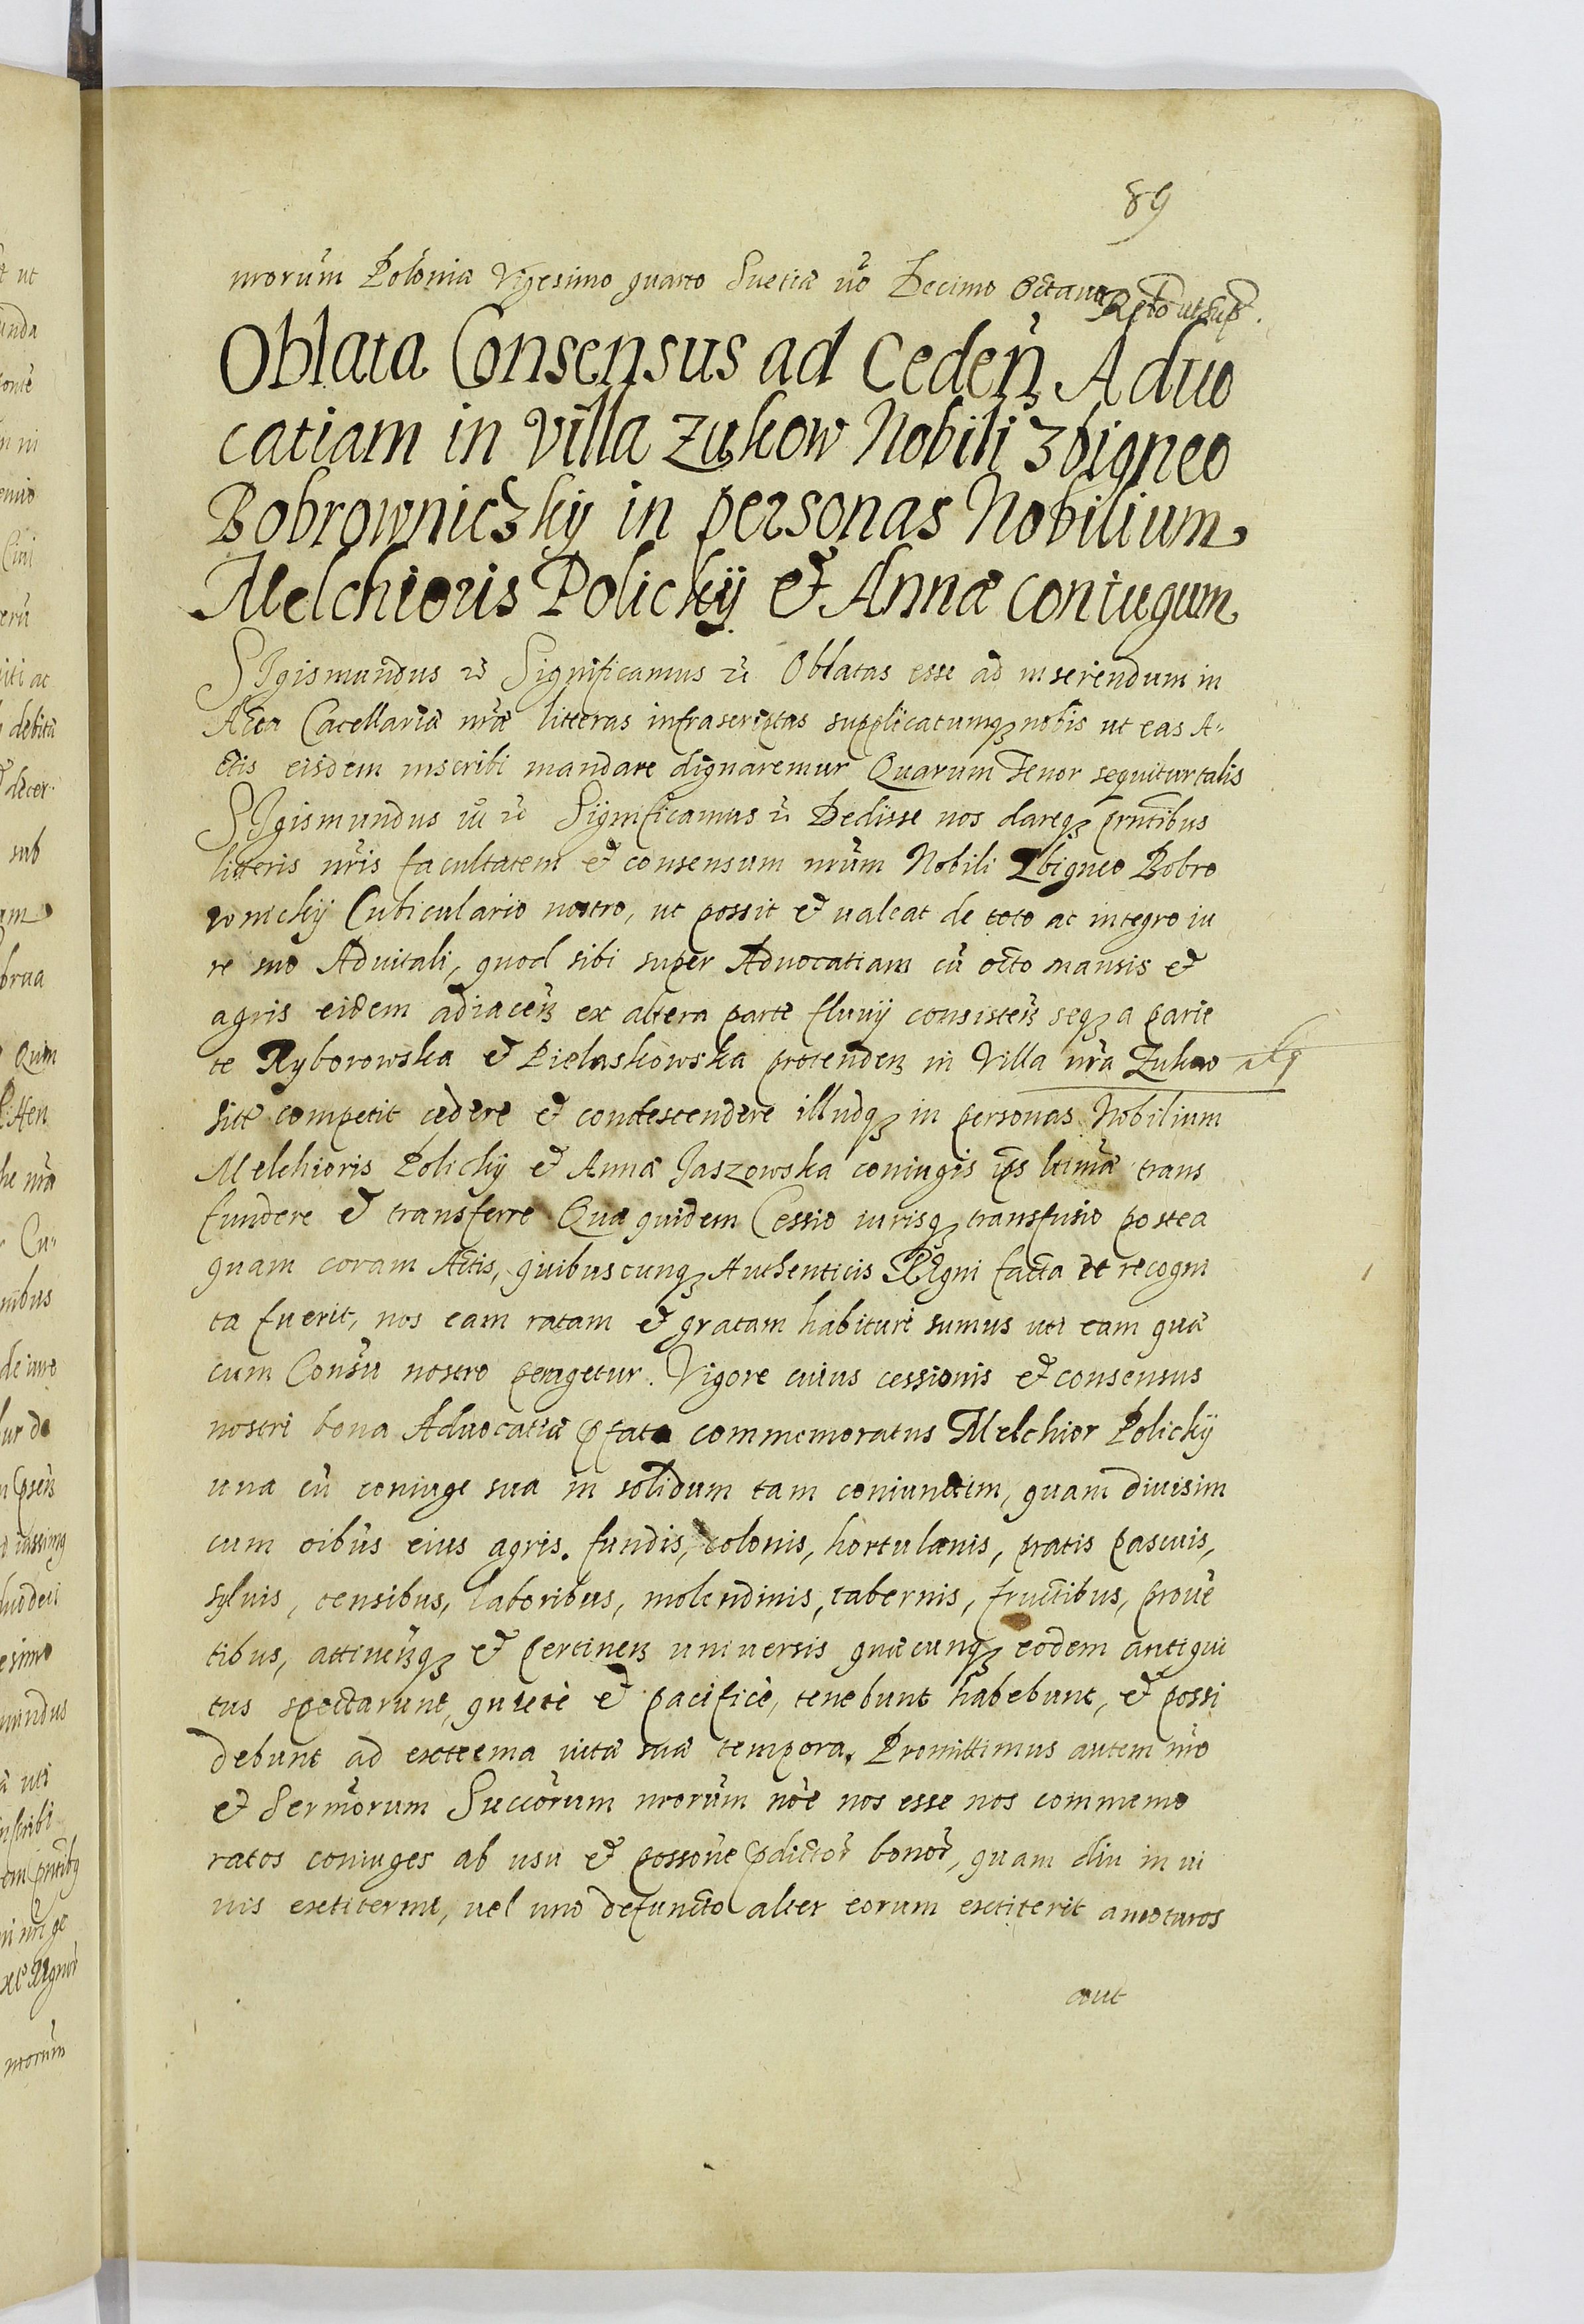 89
nrorum Poloniæ Vigesimo quarto Suetiæ vo Decimo Octauo Relo ut sup.
Oblata Consensus ad Ceden Aduo
catiam in Villa Zukow Nobili Zbigneo
Bobrowniczky in personas Nobilium
Melchioris Policky et Annæ coniugum
SIgismundus etc Significamus etc Oblatas esse ad inserendum in
Acta Cacellariæ nræ litteras infrascriptas supplicatumq nobis ut eas A-
ctis eisdem inscribi mandare dignaremur Quarum tenor sequitur talis
SIgismundus iii etc Significamus etc Dedisse nos dareq prntibus
litteris nris facultatem et consensum nrum Nobili Zbigneo Bobro
wnicky Cubiculario nostro, ut possit et ualeat de toto ac integro iu
re suo Aduitali, quod sibi super Aduocatiam cu octo mansis et
agris eidem adiacen ex altera parte fluuij consisten seq a parie
te Ryborowska et Pielaskowska protenden in Villa nra Zukow
sitte competit cedere et condescendere illudq in personas Nobilium
Melchioris Policky et Annæ Jaszowska coniugis ips ltimæ trans
fundere et transferre Quæ quidem Cessio iurisq transfusio postea
quam coram Actis, quibuscunq Authenticis REgni facta et recogni
ta fuerit, nos eam ratam et gratam habituri sumus uti eam quæ
cum Consu nostro peragetur. Vigore cuius cessionis et consensus
nostri bona Aduocatiæ pfata commemoratus Melchior Policky
una cu coniuge sua in solidum tam coniunctim, quam diuisim
cum oibus eius agris. fundis, colonis, hortulanis, pratis pascuis,
syluis, censibus, laboribus, molendinis, tabernis, fructibus, proue
tibus, attinenq et pertinen uniuersis quæcunq eodem antiqui
tus spectarunt, quiete et pacifice, tenebunt habebunt, et possi
debunt ad extrema uitæ suæ tempora. Promittimus autem nro
et Sermorum Succorum nrorum noe nos esse nos commemo
ratos coniuges ab usu et possone pdictor bonor, quam diu in ui
uis extiterint, uel uno defuncto alter eorum extiterit amoturos
aut